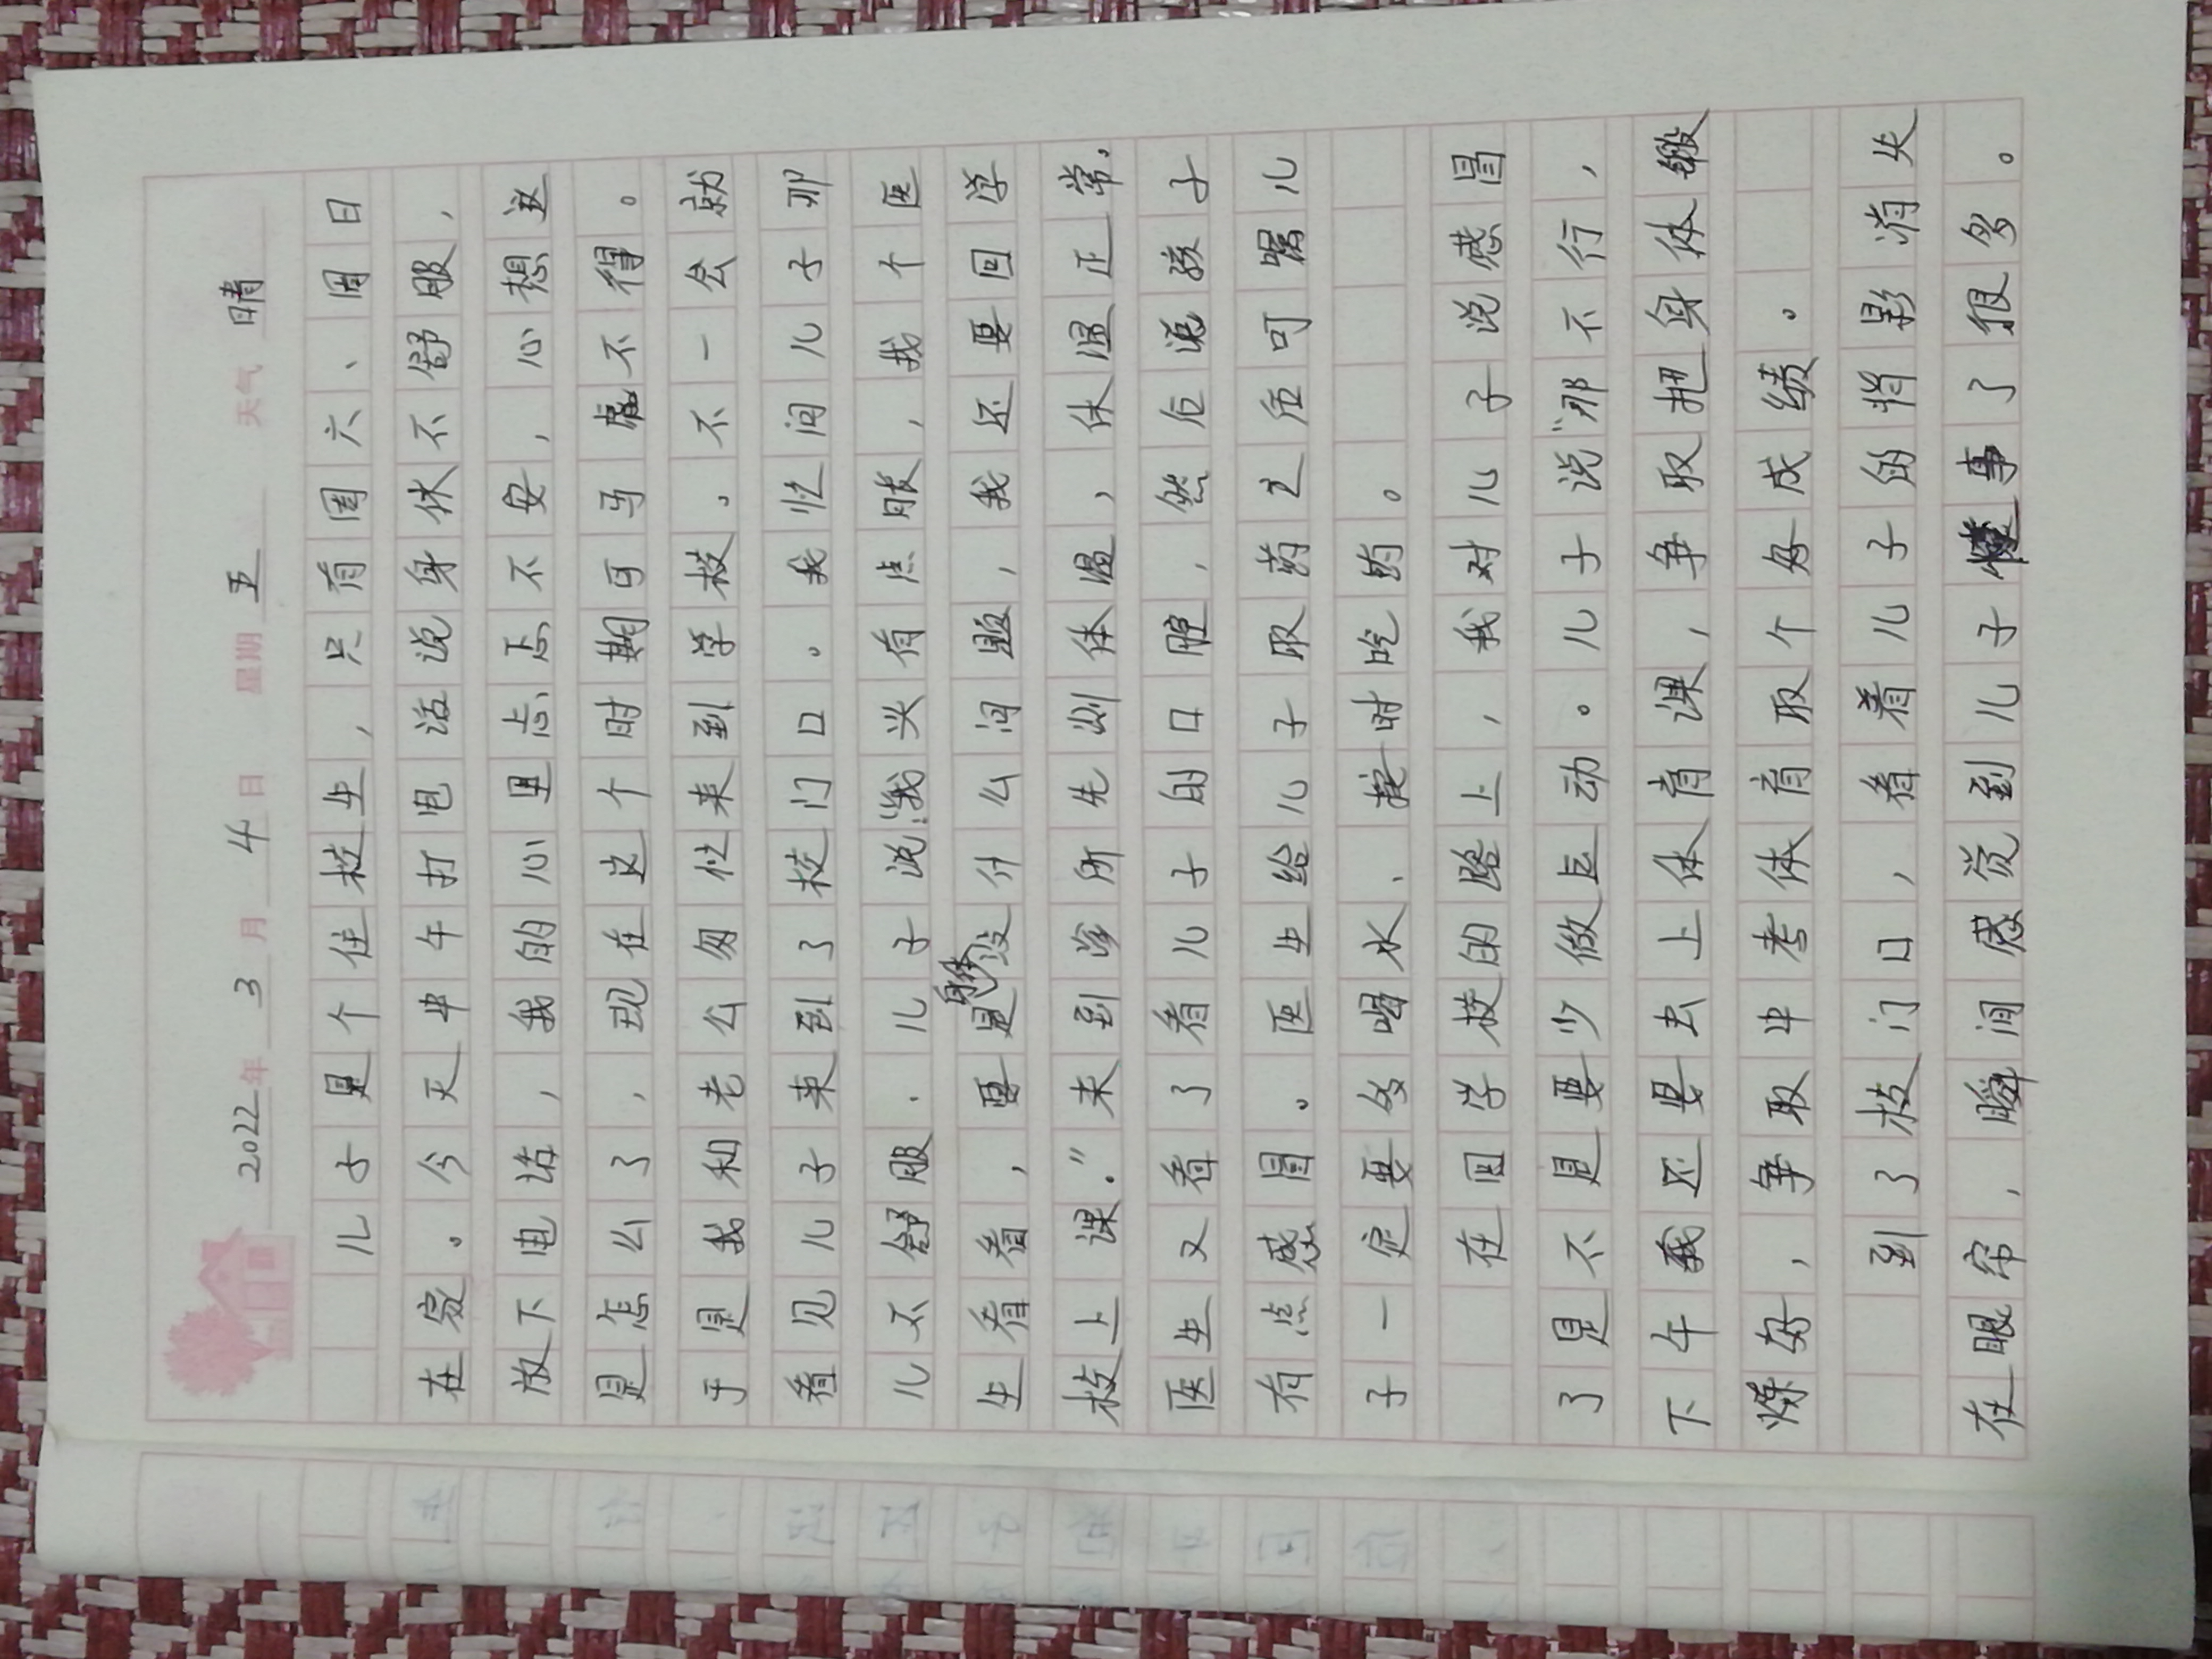 2022年 3月 4日 星期 五 天气 晴
儿子是个住校生，只有周六、周日
在家。今天中午打电话说身体不舒服，
放下电话，我的心里忐忑不安，心想这
是怎么了，现在这个时期可马虎不得。
于是我和老公匆忙来到学校。不一会就
看见儿子来到了校门口。我忙问儿子那
儿不舒服．儿子说“我头有点胀，我个医
生看看，要是身体没什么问题，我还要回学
校上课．”来到诊所先测体温，体温正常．
医生又看了看儿子的口腔，然后说孩子
有点感冒。医生给儿子取药之后叮嘱儿
子一定要多喝水、按时吃药。
在回学校的路上，我对儿子说感冒
了是不是要少做运动。儿子说“那不行，
下午我还要去上体育课，争取把身体锻
炼好，争取中考体育取个好成绩。
到了校门口，看着儿子的背影消失
在眼帘，瞬间感觉到儿子懂事了很多。